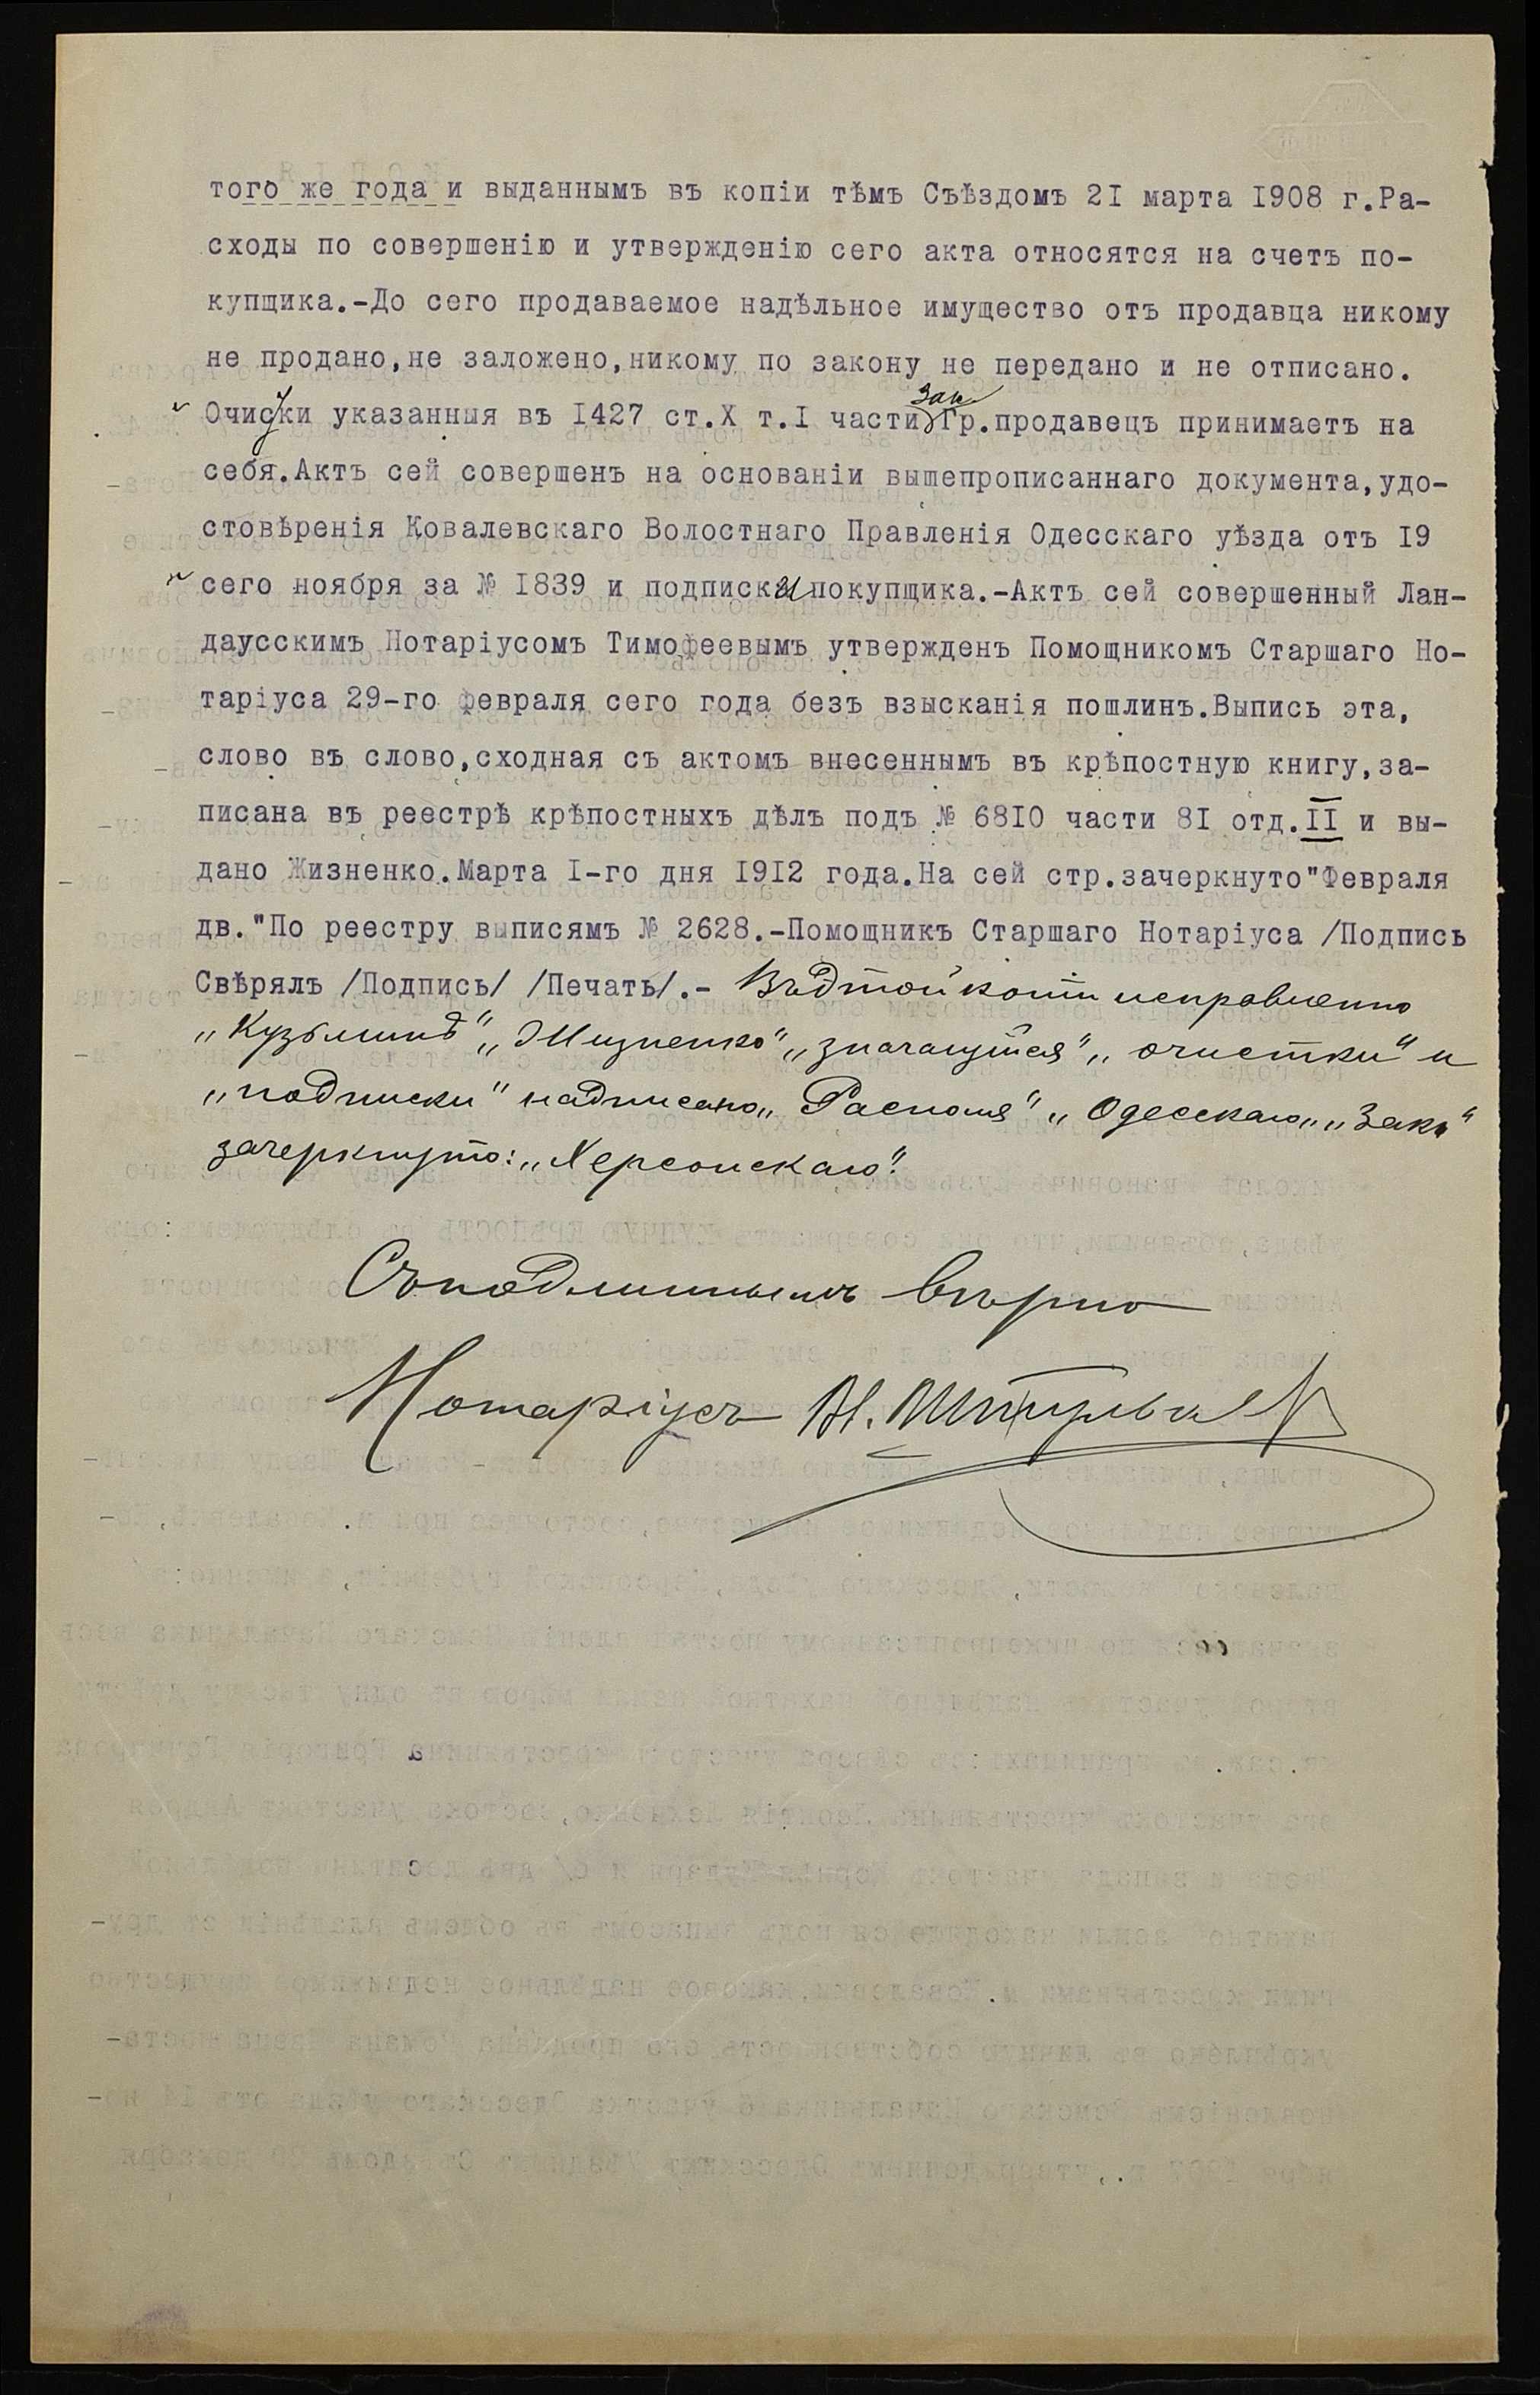 того же года и выданнымъ въ копіи тѣмъ Съѣздомъ 21 марта 1908 г.Ра-
сходы по совершенію и утвержденію сего акта относятся на счетъ по-
купщика.-До сего продаваемое надѣльное имущество отъ продавца никому
не продано,не заложено,никому по закону не передано и не отписано.
Очистки указанныя въ I427 ст.X т.I части Зак. Гр.продавецъ принимаетъ на
себя.Актъ сей совершенъ на основаніи вышепрописаннаго документа,удо-
стовѣренія Ковалевскаго Волостнаго Правленія Одесскаго уѣзда отъ I9
сего ноября за № I839 и подписки покупщика.-Актъ сей совершенный Лан-
даусскимъ Нотаріусомъ Тимофеевымъ утвержденъ Помощникомъ Старшаго Но-
таріуса 29-го февраля сего года безъ взысканія пошлинъ.Выпись эта,
слово въ слово,сходная съ актомъ внесеннымъ въ крѣпостную книгу,за-
писана въ реестрѣ крѣпостныхъ дѣлъ подъ № 68I0 части 8I отд.II и вы-
дано Жизненко.Марта I-го дня I9I2 года.На сей стр.зачеркнуто"Февраля
дв."По реестру выписямъ № 2628.-Помощникъ Старшаго Нотаріуса /Подпись
Свѣрялъ /Подпись/ /Печать/.- Въ этой копіи исправленно
„Кузьминъ" „Жизненко" „значащійся" „очистки" и
„подписки" надписано „ „Одесскаго" „Зак."
зачеркнуто: „Херсонскаго".
Съ подлиннымъ вѣрно
Нотаріусъ